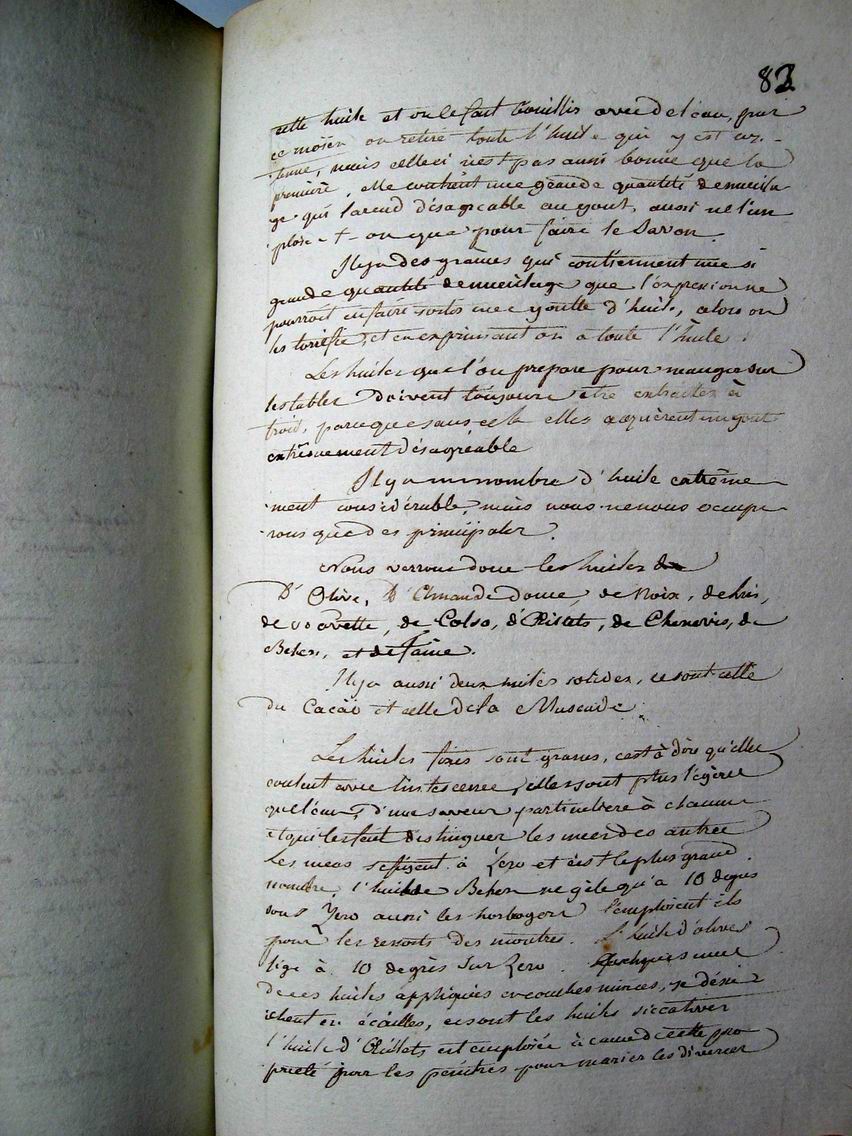 83
cette huile et on le fait bouillir avec de l'eau, par
ce moien on retire toute l'huile qui y est
tenue, mais celle ci n'est pas aussi bonne que la
premiere, elle contient une grande quantité de mucila
ge qui la rend désagréable au gout, aussi ne l'em
ploie-t-on que pour faire le Savon.
Il y a des graines qui contiennent une si
grande quantité de mucilage que l'expression ne
pourroit en faire sortir une goutte d'huile, alors on
les torréfie, et en exprimant on a toute l'huile.
Les huiles que l'on prepare pour manger sur
les tables doivent toujours etre extraites à
froid, parceque sans cela elles acquèrent un gout
extrêmement désagréable
Il y a un nombre d'huile extrême-
ment considérable, mais nous ne nous occupe-
rons que des principales.
Nous verrons donc les huiles
D'Olive, D'Amande douce, de Noix, de Lin,
de Navette, de Colsa, d'Œillets, de Chenevis, de
Behen, et de faine.
Il y a aussi deux huiles solides, ce sont celle
du Cacao et celle de la Muscade.
Les huiles fixes sont grasses, c'est à dire qu'elles
coulent avec, elles sont plus légères
que l'eau, d'une saveur particuliere à chacune
et qui les fait distinguer les unes des autres
Les unes se figent à Zero et c'est le plus grand
nombre, l'huile de Behen ne gèle qu'a 10 degrés
sous Zero aussi les horlogers l'emploient ils
pour les ressorts des montres. L'huile d'olives
fige à 10 degrès sur Zero. Quelques unes
de ces huiles appliquées en couches minces, se déssè
chent en écailles, ce sont les huiles siccatives
l'huile d'Œillets est emploiée à cause de cette pro
prieté par les peintres pour marier les diverses